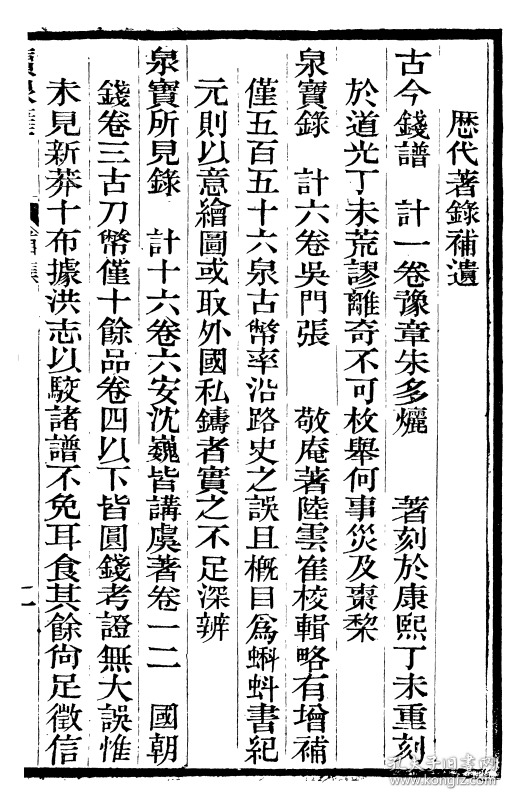 歷代著錄補遺
古今錢譜　計一卷豫章朱多爜　著刻於康熙丁未重刻
於道光丁未荒謬離奇不可枚舉何事災及棗棃
泉寶錄　計六卷吳門張　敬庵著陸雲崔梭輯略有增補
僅五百五十六泉古幣率沿路史之誤且概目爲蝌蚪書紀
元則以意繪圖或取外國私鑄者實之不足深辨
泉寶所見錄　計十六卷六安沈巍皆講虞著卷一二　國朝
錢卷三古刀幣僅十餘品卷四以下皆圓錢考證無大誤惟
未見新莽十布據洪志以駮諸譜不免耳食其餘尙足徵信
二